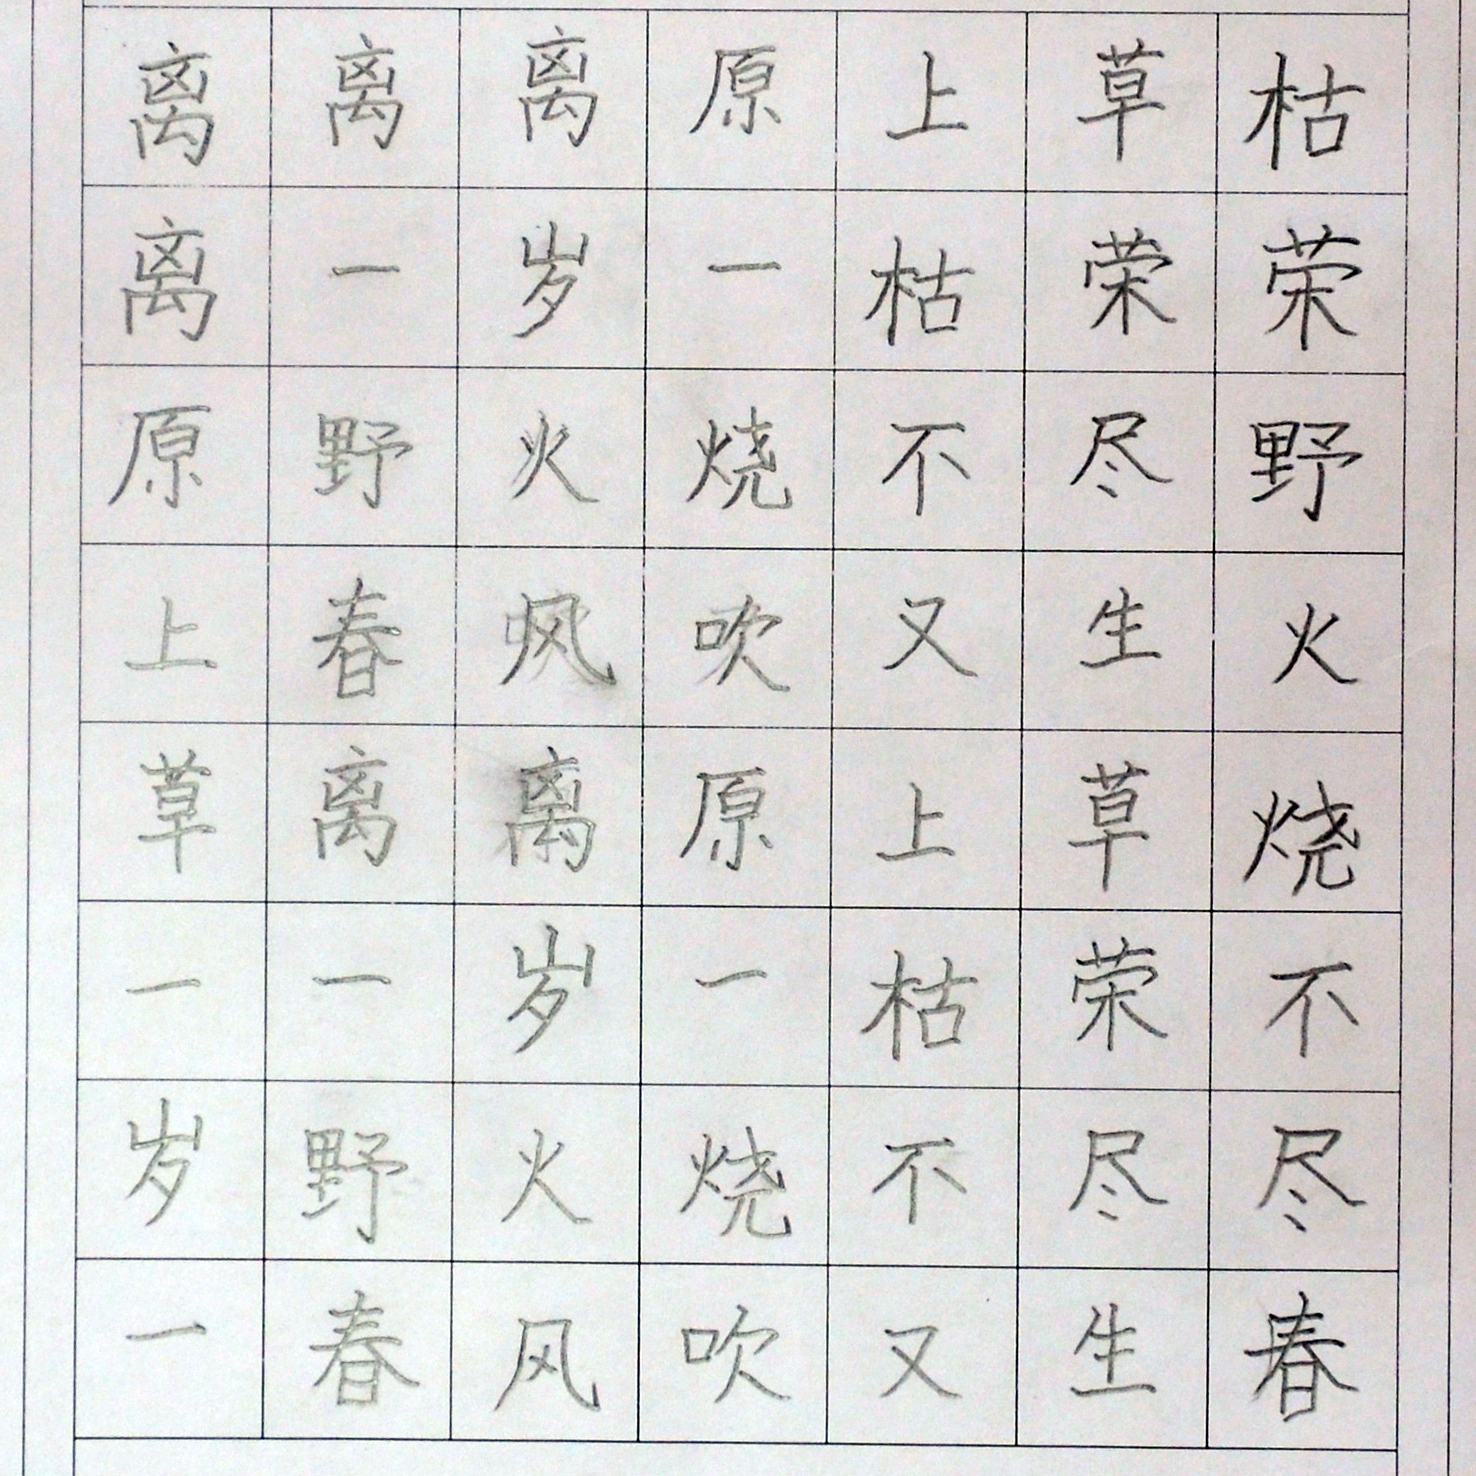 离离离原上草枯
离一岁一枯荣荣
原野火烧不尽野
上春风吹又生火
草离离原上草烧
一一岁一枯荣不
岁野火烧不尽尽
一春风吹又生春